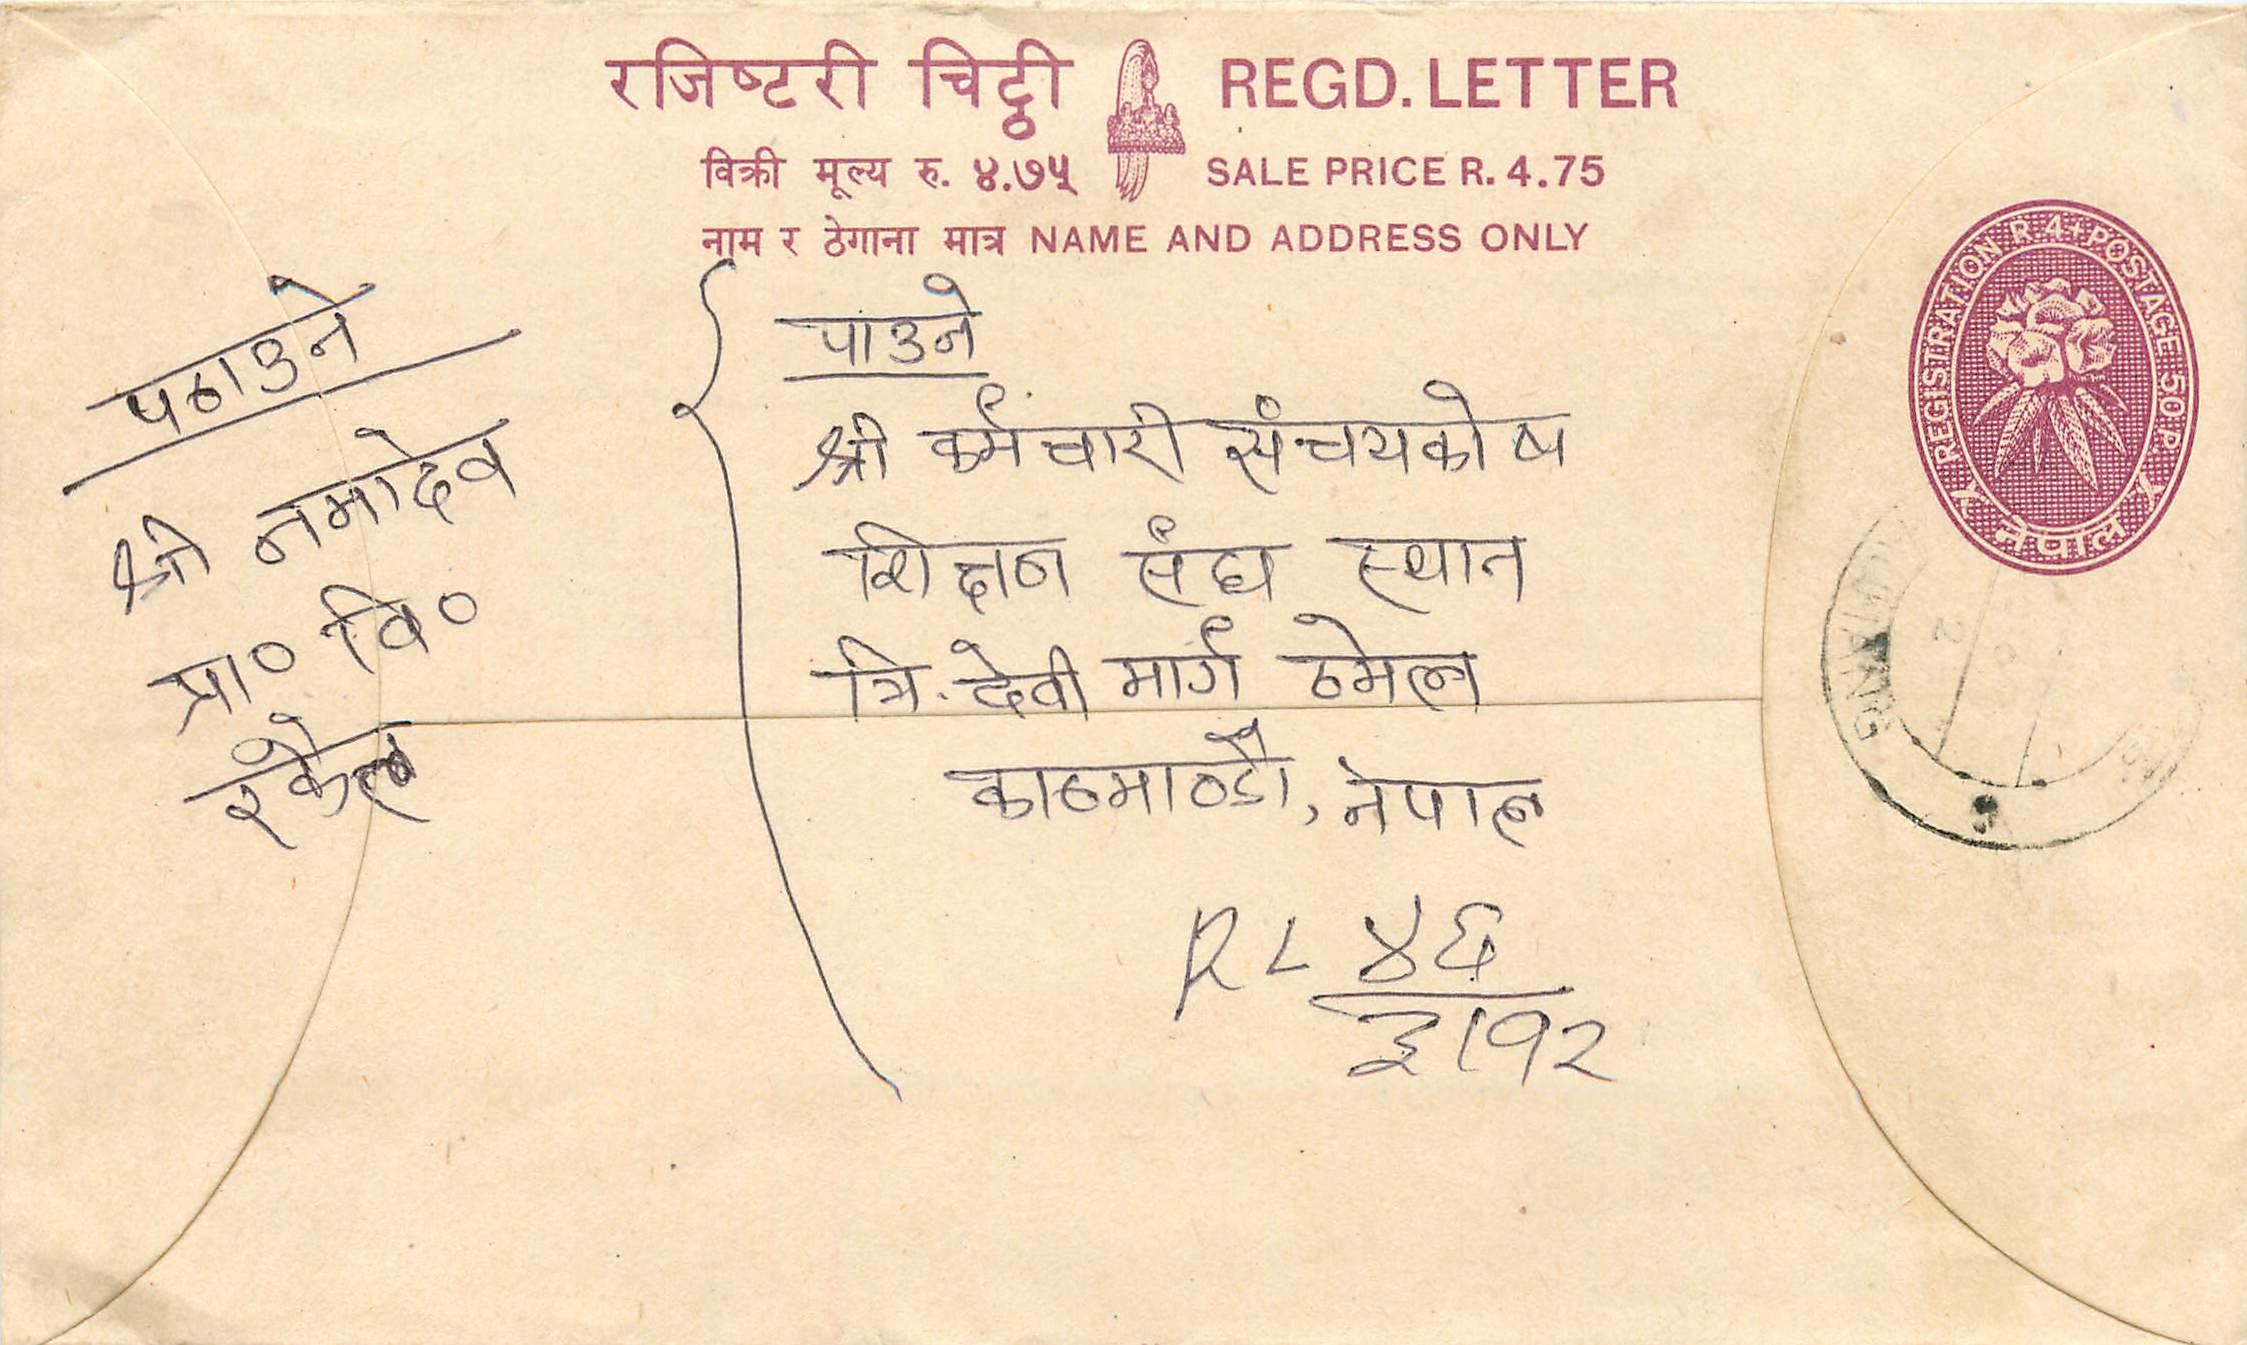 रजिष्टरी चिट्ठी REGD. LETTER
विक्री मूल्य रु. ४.७५ SALE PRICE R. 4.75
नाम र ठेगाना मात्र NAME AND ADDRESS ONLY
REGISTRATION R. 4 + POSTAGE 50 P.
नेपाल
पठाउने
श्री नमादेव
प्रा० वि०
रकैल
पाउने
श्री कर्मचारी संचयकोष
शिक्षण संघ स्थान
त्रि. देवी मार्ग ठमेल
काठमाण्डौ, नेपाल
RL ४६
३।१२